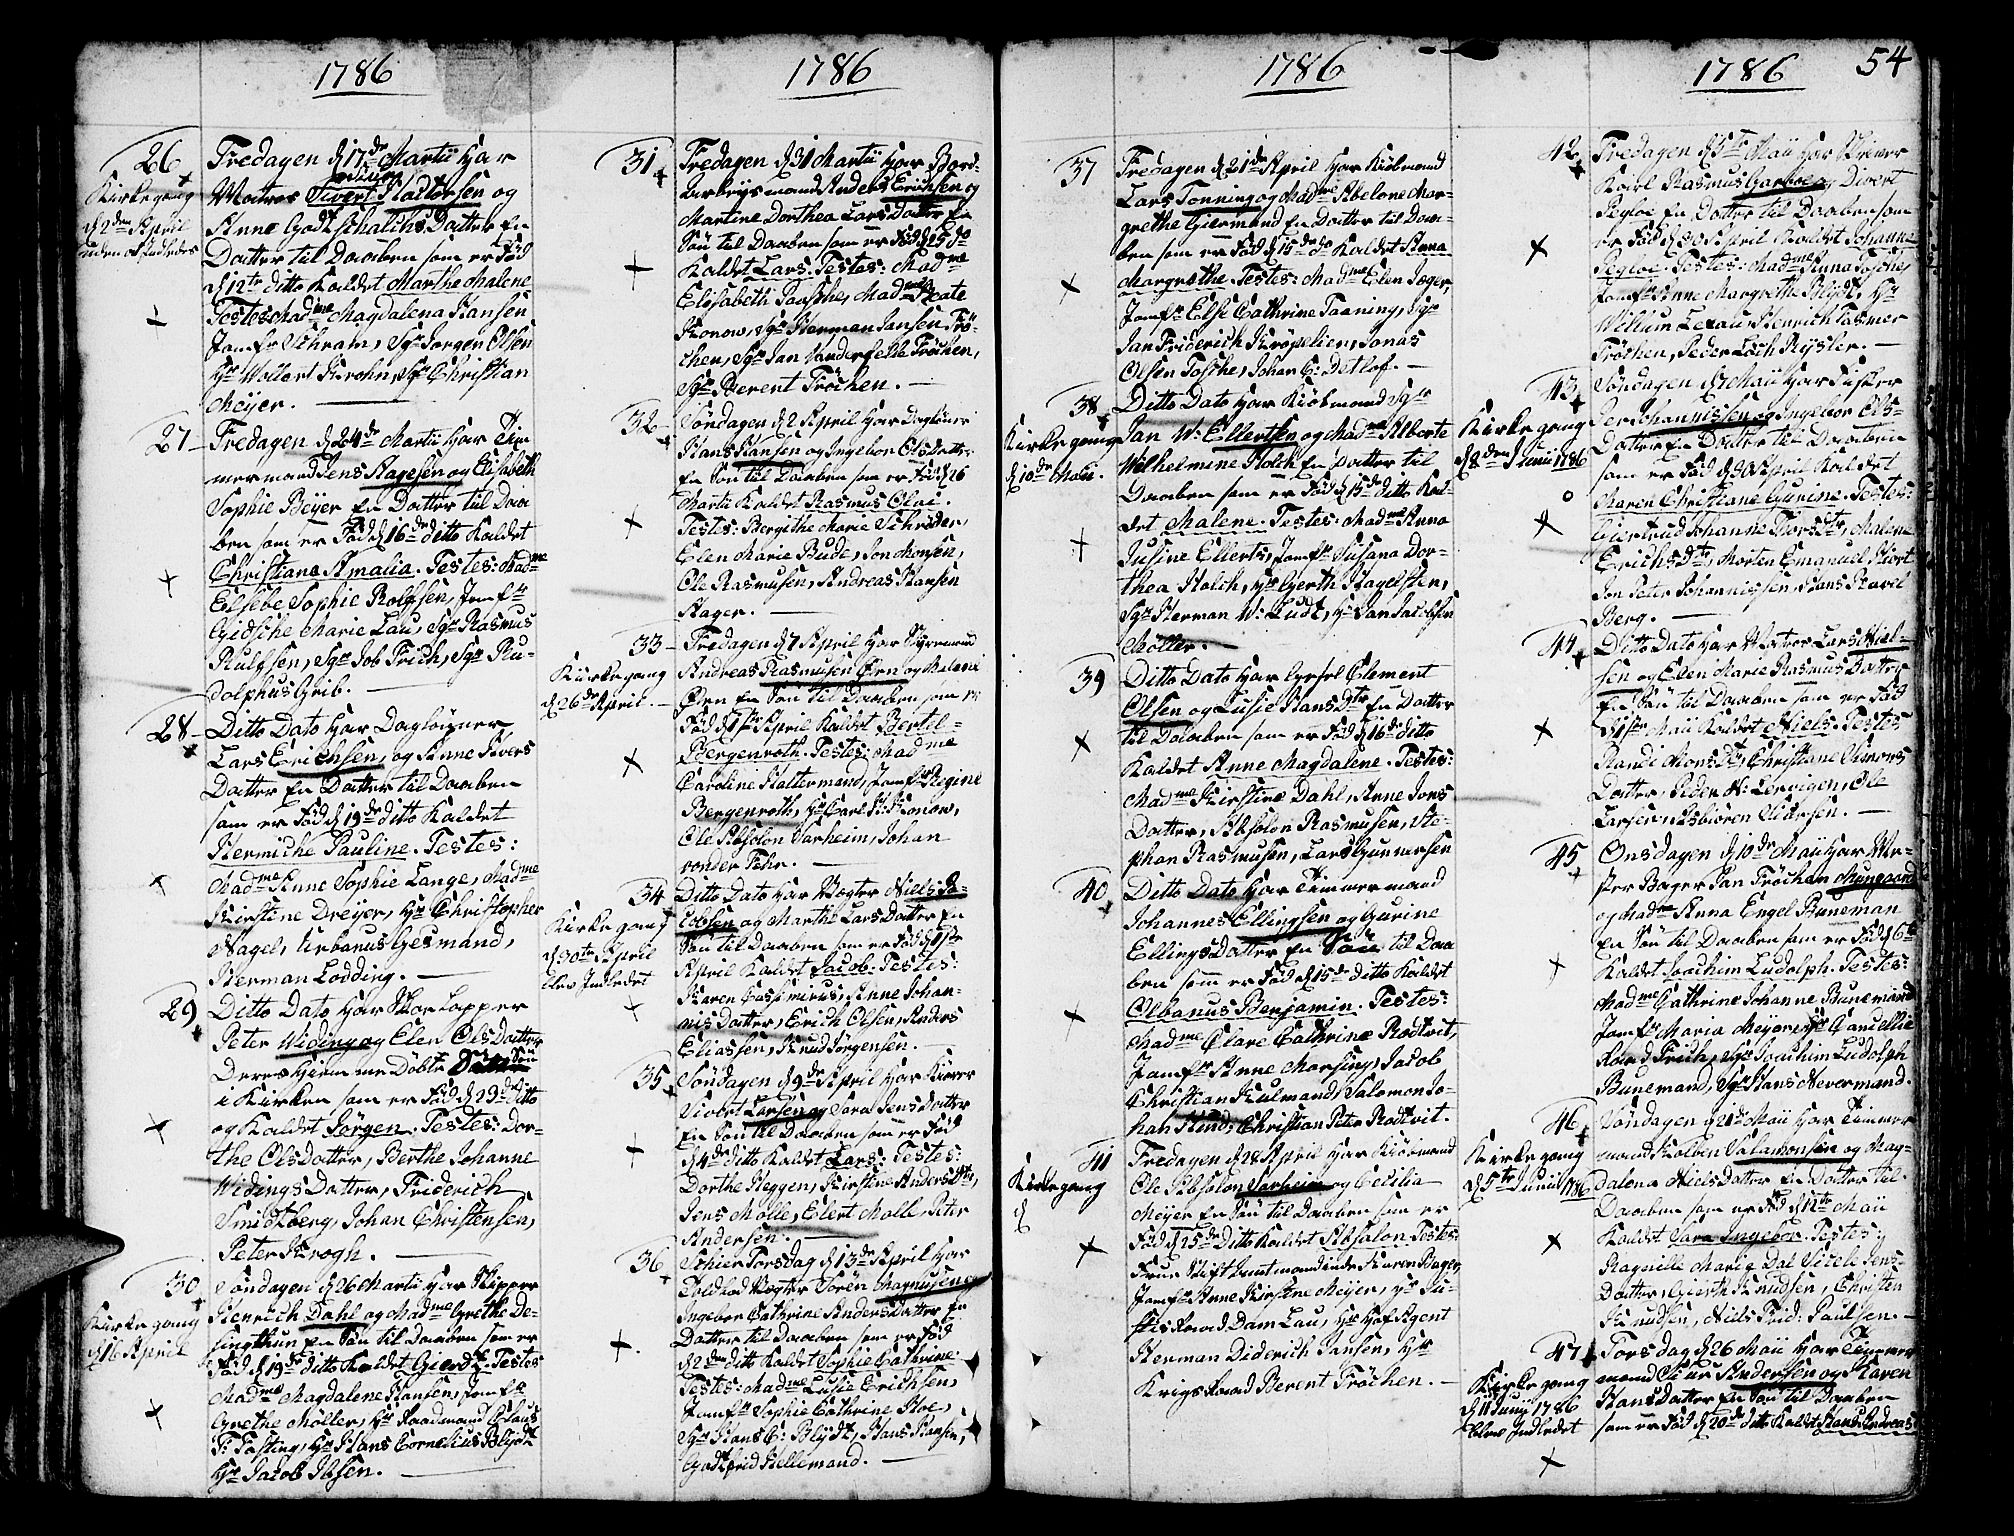 1786
26
Kirkegang
d 2den April
uden at Indledes
Fredagen d 17de Martii har
Matros Sivert Haldorsen og
Anne Godtschalchs Datter En
Datter til Daaben som er Fød
d 12te ditto Kaldet Marthe Malene
Testes Madme Magdalena Hansen
Jomfr Schram, Sgr Jørgen Olsen
Hr Wollert Krohn, Sgr Christian
Meyer.
27
Fredagen d 24de Martii har Tim
mermand Jens Hagesen og Elisabeth
Sophie Beyer En Datter til Daa
ben som er Fød d 16de ditto Kaldet
Christiane Amalia. Testes: Madme
Elsebe Sophie Rolfsen, Jomfr
Gidsche Marie Lau, Sgr Rasmus
Rulfsen, Sgr Job Frich, Sgr Ru-
dolphus Grib.
28
Ditto Dato har Dagløyner
Lars Erichsen, og Anne Ivers
Datter En Datter til Daaben
som er Fød d 19de ditto Kaldet
Hermiche Pauline. Testes:
Madme Anne Sophie Lange, Madme
Kirstine Dreyer, Hr Christopher
Nagel, Urbanus Gesmand,
Herman Lodding.
29
Ditto Dato har Skor Lapper
Peter Widing og Elen Ols Datter
Deres Hiemme Døbte Søn
i Kirken som er Fød d 23de ditto
og Kaldet Jørgen. Testes: Dor-
the Olsdatter, Berthe Johanne
Widings Datter, Friderich
Smidtberg, Johan Christensen,
Peter Krogh.
30
Kirkegang
d 16 April
Søndagen d 26 Martii har Skipper
Henrich Dahl og Madme Grethe De-
singthun En Søn til Daaben som er
Fød d 19de ditto Kaldet Gierdt. Testes
Madme Magdalene Hansen, Jomfr
Grethe Møller, Hr Raadmand Claus
F: Fasting, Hr Hans Cornelius Blydt
Hr Jacob Ibsen.
1786
31
Fredagen d 31 Martii har Bord-
Martine Dorthea Lars Datter En
Søn til Daaben som er Fød d 25de do
Kaldet Lars. Testes: Madme
Elisabeth Paasche, Madme Beate
Konow, Sgr Herman Jansen Frö-
chen, Sgr Jan Vanderfehr Fröchen,
Sgr Berent Fröchen.
32
Søndagen d 2 April har Dagløner
Hans Hansen og Ingebor Ols Datter
En Søn til Daaben som er Fød d 26
Martii Kaldet Rasmus Olai
Testes: Bergithe Marie Schrøder,
Elen Marie Bude, Jon Monsen,
Ole Rasmusen, Andreas Hansen
Hager.
33
Kirkegang
d 26de April.
Fredagen d 7 April har Styrmand
Andreas Rasmusen Örn og Malene
Örn En Søn til Daaben som er
Fød d 1ste April Kaldet Bertel
Bergenroth. Testes: Madme
Caroline Haltermand, Jomfr Regine
Bergenroth, Hr Carl Konow,
Ole Absolon Sarheim, Johan
vonder Fehr.
34
Kirkegang
d 30te April
blev Indledet
Ditto Dato har Vægter Niels Ja-
cobsen og Marthe Lars Datter En
Søn til Daaben som er Fød d 1ste
April Kaldet Jacob. Testes:
Karen Casimirius, Anne Johan-
nis Datter, Erich Olsen, Anders
Eliassen, Knud Jørgensen.
35
Søndagen d 9de April har Kiører
Sivert Larsen og Sara Jens Datter
En Søn til Daaben som er Fød
d 4de ditto Kaldet Lars: Testes:
Dorthe Heggen, Kirstine Anders Dtr,
Jens Molle, Elert Moll, Peter
Andersen.
36
Schier Torsdag d 13de April har
Toldbod Vægter Sörên Magnusen og
Ingebor Cathrine Anders Datter En
Datter til Daaben som er Fød
d 2den ditto Kaldet Sophie Cathrine:
Testes: Madme Lusie Erichsen,
Jomfr Sophie Cathrine Hoe,
Sgr Hans C: Blydt, Hans Hansen,
Godtfrid Hellemand.
1786
37
Fredagen d 21de April har Kiöbmand
Lars Tønning og Madme Abelone Mar-
grethe Giermand En Datter til Daa-
ben som er Fød d 15de do Kaldet Anna
Margrethe. Testes: Madme Elen Jæger,
Jomfr Else Cathrine Taaning, Sgr
Jan Friderich Kröpelien, Jonas
Olsen Tosche, Johan C: Detlof.
38
Kirkegang
d 10de Maii.
Ditto Dato har Kiöbmand Sgr
Jan W: Ellertsen og Madme Alberte
Wilhelmine Holck En Datter til
Daaben som er Fød d 15de ditto Kal-
det Malene. Testes: Madme Anna
Jusine Ellerts, Jomfr Susana Dor-
thea Holck, Hr Gierth Hagelsten,
Sgr Herman W: Ludt, Hr Jan Jacobsen
Möller.
39
Ditto Dato har Gesel Clement
Olsen og Lusie Hans Dtr En Datter
til Daaben som er Fød d 16de ditto
Kaldet Anne Magdalene. Testes:
Madme Kirstine Dahl, Anne Jons
Datter, Absolon Rasmusen, Ste-
phan Rasmusen, Lars Gunnersen
40
Ditto Dato har Timmermand
Johannes Ellingsen og Gurine
Ellings Datter En Søn til Daa
ben som er Fød d 15de ditto Kaldet
Olbanus Benjamin. Testes:
Madme Clare Cathrine Rodtvit,
Jomfr Anne Marsing, Jacob
Christian Kulmand, Salomon Jo-
han Hind, Christian Peter Rodtvit.
41
Kirkegang
d
Fredagen d 28 April har Kiöbmand
Ole Absolon Sarheim og Cecilia
Meyer En Søn til Daaben som er
Fød d 25de Ditto Kaldet Absalon. Testes:
Jomfr Anne Kirstine Meyer, Hr Ju-
stis Raad Dam Lau, Hr Hof Agent
Herman Diderich Jansen, Hr
Krigs Raad Berent Fröchen.
1786
54
42
Fredagen d 5te Maii har Skriver
Karl Rasmus Garboe og Divert
Pegloe En Datter til Daaben som
er Fød d 30 April Kaldet Johanne
Pegloe. Testes: Madme Anna Tosche,
Jomfr Anne Margrethe Blydt, Hr
Willum Lexau, Henrich Fasmer
Fröchen, Peder Loch Kysler.
43
Kirkegang
d 8den Junii 1786
Søndagen d 7 Maii har Fisker
Per Johannissen og Ingebor Ols-
Datter En Datter til Daaben
som er Fød d 30 April Kaldet
Maren Christiane Gurine. Testes:
Giertrud Johanne Thors Dtr, Malene
Erichs Dtr, Morten Emanuel Hiort
Jon Peter Johannissen, Hans Havel
Berg.
44
Ditto Dato har Matros Lars Niel-
sen og Elen Marie Rasmus Datter
En Søn til Daaben som er Fød
d 1ste Maii Kaldet Niels. Testes
Randi Mons Dtr, Christiane Simons
Datter, Peder N: Lervigen, Ole
Larsen, Asbiören Olarsen.
45
Onsdagen d 10de Maii har Me-
ster Bager Jan Fröchen Mungaard
og Madme Anna Engel Buneman
En Søn til Daaben som er Fød d 6te
Kaldet Joachim Ludolph. Testes:
Madme Cathrine Johanne Bunemand
Jomfr Maria Meyer, Hr Cancellie
Raad Frich, Sgr Joachim Ludolph
Bunemand, Sgr Hans Nevermand.
46
Kirkegang
d 5te Junii 1786
Søndagen d 21de Maii har Timmer
mand Kolbin Salamonsen og Mag-
dalena Niels Datter En Datter til
Daaben som er Fød d 12te Maii
Kaldet Sara Ingebor. Testes:
Datter, Gierth Knudsen, Christen
Knudsen, Niels Frid: Paulsen.
47
Kirkegang
d 11 Juny 1786
blev Indledet
Torsdag d 26 Maii har Timmer
mand Siur Andersen og Karen
Hans Datter En Søn til Daaben
som er Fød d 20de ditto Kaldet Hans Andreas